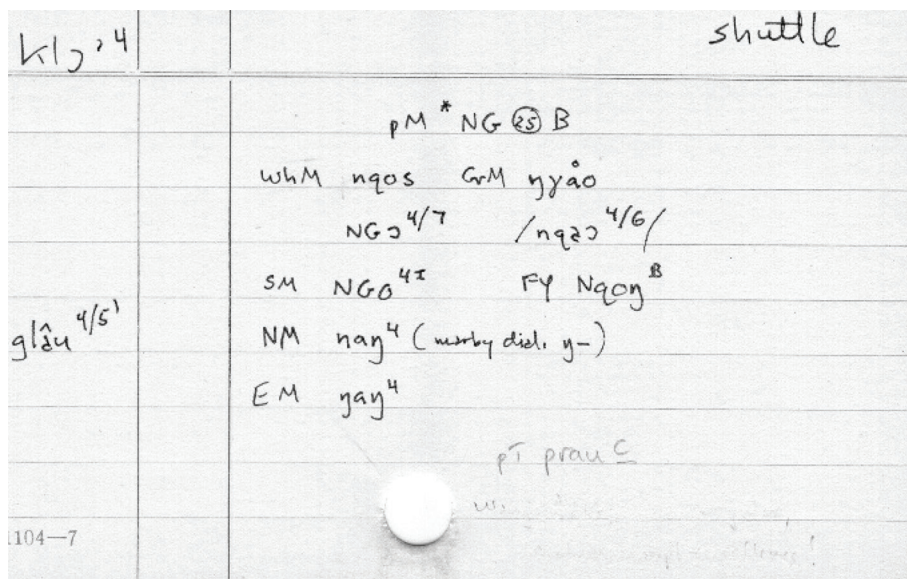 klɔ’4 shuttle
pM *NG ㉕ B
WhM nqos GrM ŋɣåo
NGɔ 4/7 /nqɜɔ 4/6/
SM NGo 4I FY Nqoŋ B
glâu 4/5' NM naŋ4 (mosby dial. ŋ–)
EM ŋaŋ4
pT prau C
1104—7